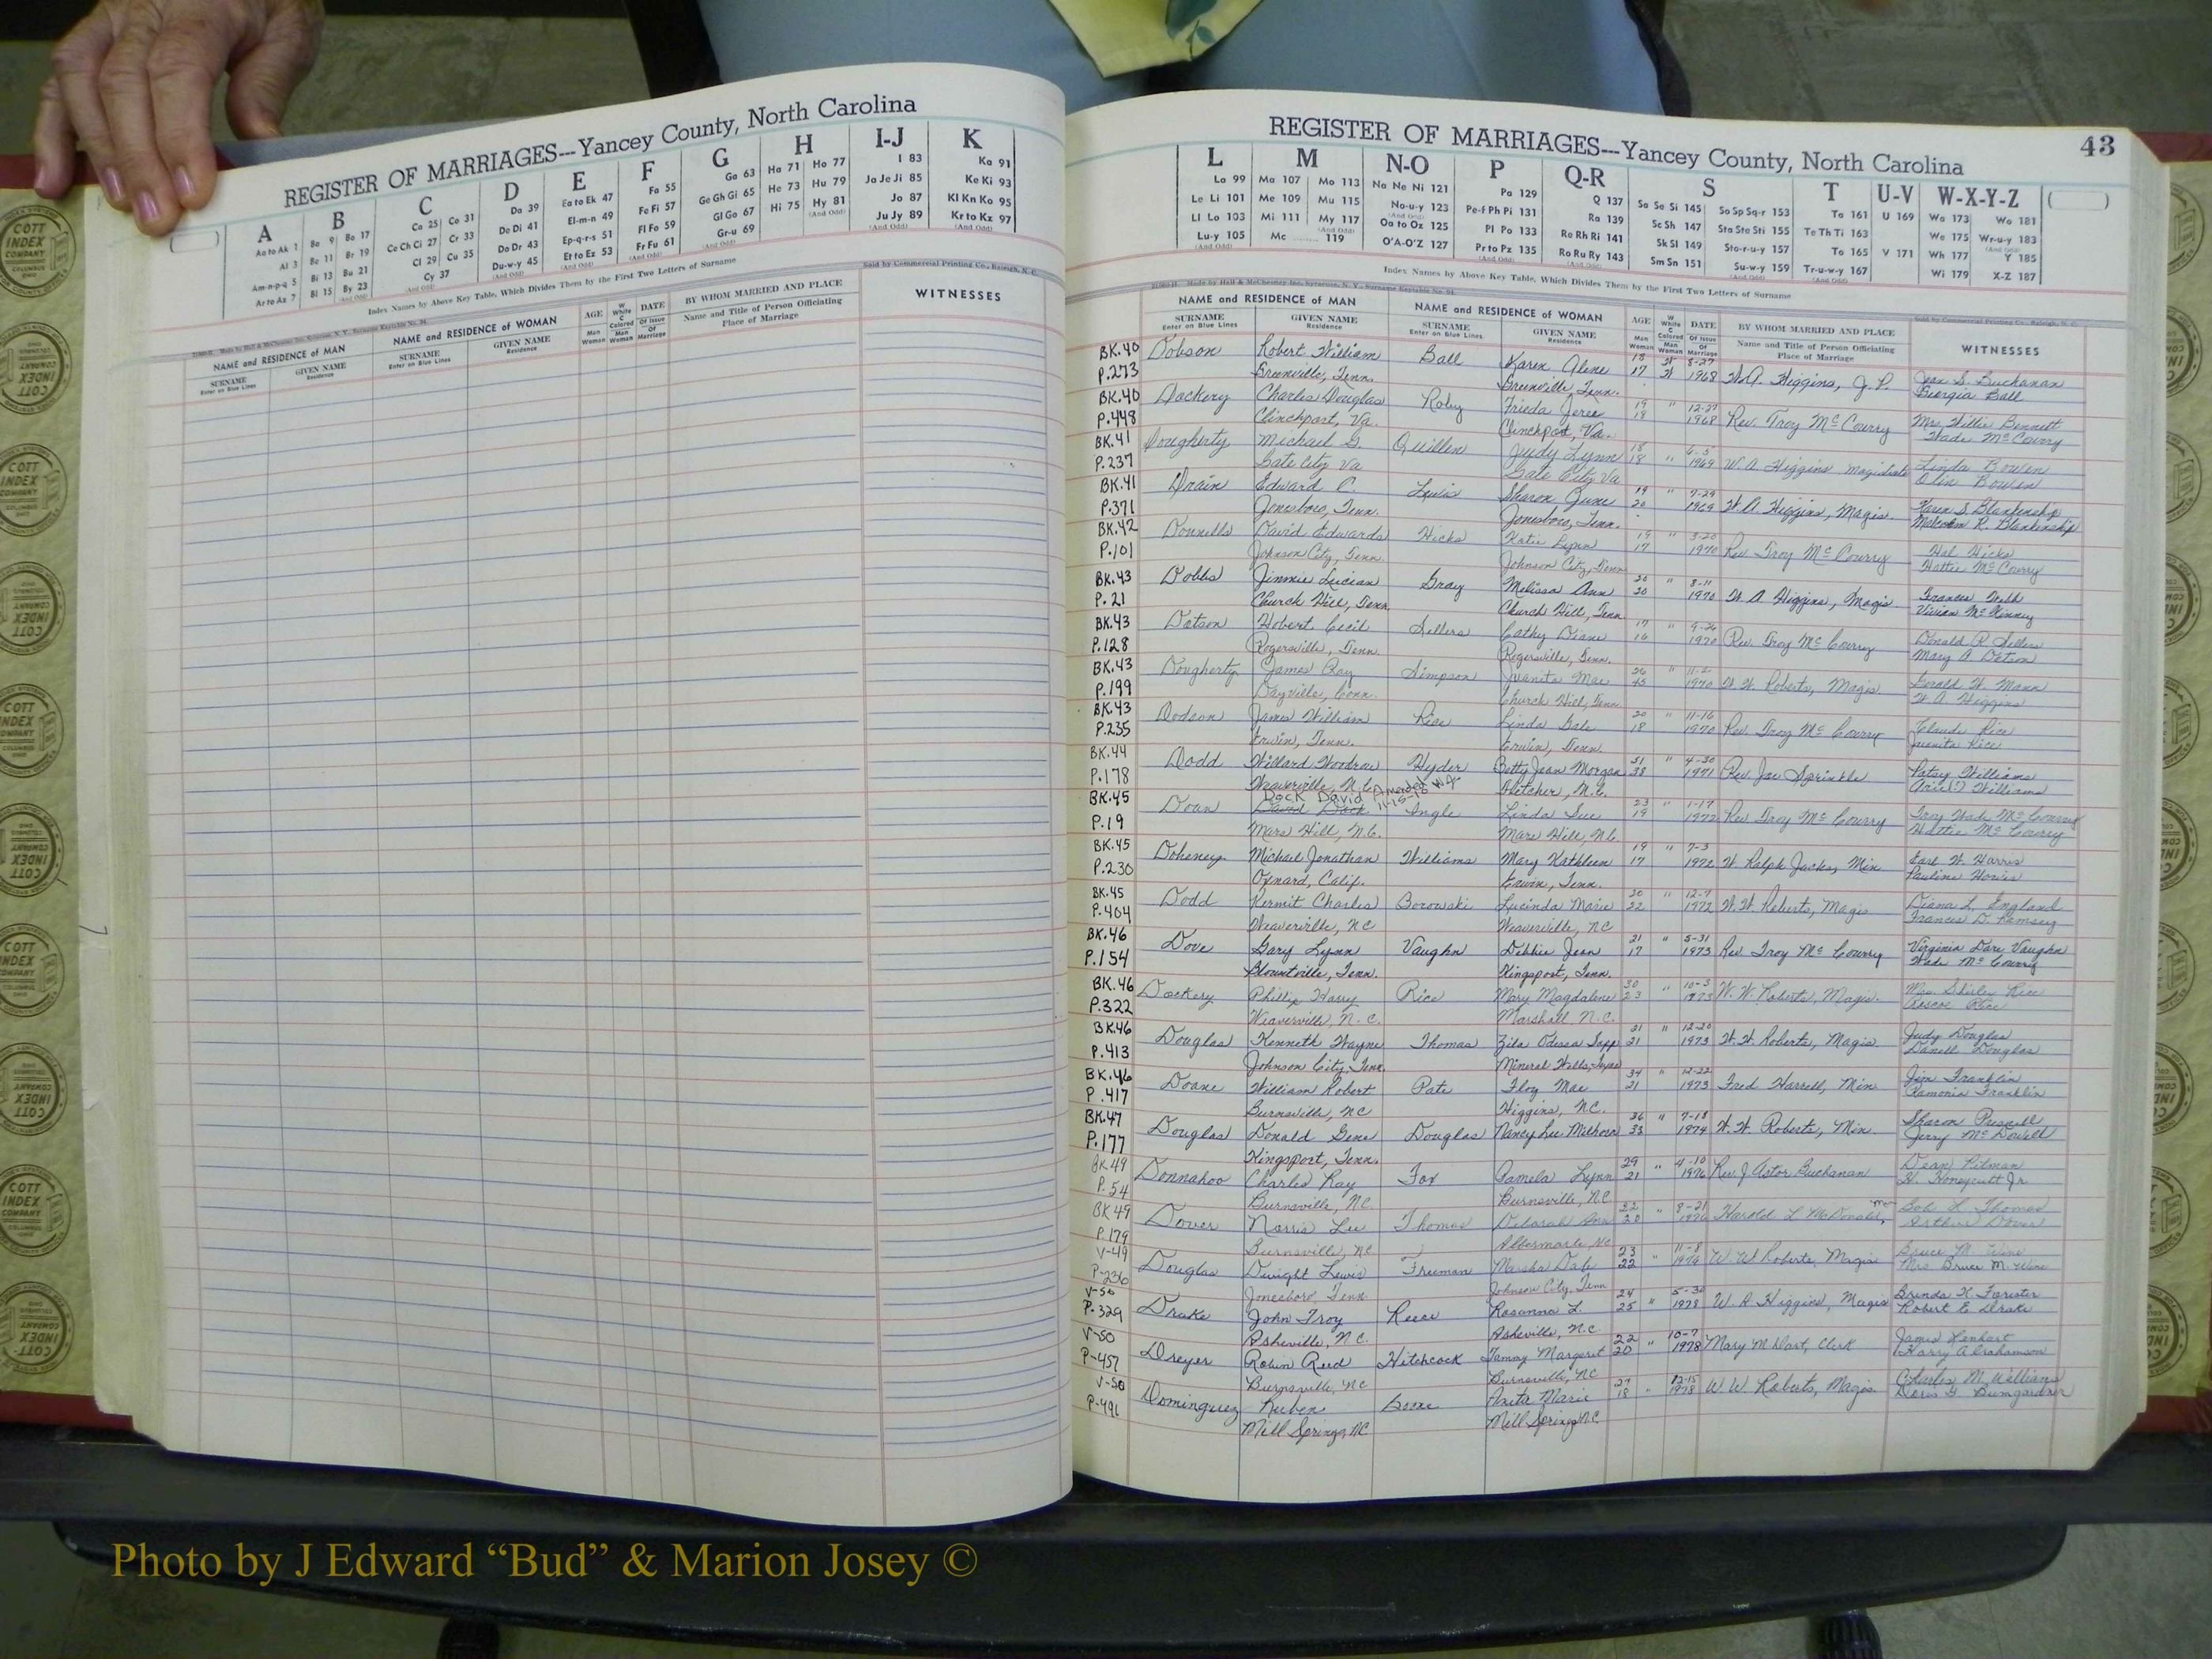 REGISTER OF MARRIAGES---Yancey County, North Carolina
A B C D E F G H I-J K
Aa to Ak 1 Ba 9 Bo 17 Ca 25 Co 31 Da 39 Ea to Ek 47 Fa 55 Ga 63 Ha 71 Ho 77 I 83 Ka 91
Al 3 Be 11 Br 19 Ce Ch Ci 27 Cr 33 De Di 41 El-m-n 49 Fe Fi 57 Ge Gh Gi 65 He 73 Hu 79 Ja Je Ji 85 Ke Ki 93
Am-n-p-q 5 Bi 13 Bu 21 Cl 29 Cu 35 Do Dr 43 Ep-q-r-s 51 Fl Fo 59 Gl Go 67 Hi 75 Hy 81 Jo 87 Kl Kn Ko 95
Ar to Az 7 Bl 15 By 23 Cy 37 Du-w-y 45 Et to Ez 53 Fr Fu 61 Gr-u 69 Ju Jy 89 Kr to Kz 97
Index Names by Above Key Table, Which Divides Them by the First Two Letters of Surname
Sold by Commercial Printing Co., Raleigh, N. C.
NAME and RESIDENCE of MAN NAME and RESIDENCE of WOMAN AGE DATE BY WHOM MARRIED AND PLACE WITNESSES
SURNAME GIVEN NAME SURNAME GIVEN NAME Name and Title of Person Officiating
Enter on Blue Lines Residence Enter on Blue Lines Residence Place of Marriage
43
REGISTER OF MARRIAGES---Yancey County, North Carolina
L M N-O P Q-R S T U-V W-X-Y-Z
La 99 Ma 107 Mo 113 Na Ne Ni 121 Pa 129 Q 137 Sa Se Si 145 So Sp Sq-r 153 Ta 161 U 169 Wa 173 Wo 181
Le Li 101 Me 109 Mu 115 No-u-y 123 Pe-f Ph Pi 131 Ra 139 Sc Sh 147 Sta Ste Sti 155 Te Th Ti 163 We 175 Wr-u-y 183
Ll Lo 103 Mi 111 My 117 Oa to Oz 125 Pl Po 133 Re Rh Ri 141 Sk Sl 149 Sto-r-u-y 157 To 165 V 171 Wh 177 Y 185
Lu-y 105 Mc 119 O'A-O'Z 127 Pr to Pz 135 Ro Ru Ry 143 Sm Sn 151 Su-w-y 159 Tr-u-w-y 167 Wi 179 X-Z 187
Index Names by Above Key Table, Which Divides Them by the First Two Letters of Surname
NAME and RESIDENCE OF MAN NAME and RESIDENCE OF WOMAN AGE DATE BY WHOM MARRIED AND PLACE WITNESSES
SURNAME GIVEN NAME SURNAME GIVEN NAME Name and Title of Person Officiating
Enter on Blue Lines Residence Enter on Blue Lines Residence Place of Marriage
BK.40 Dobson Robert William Ball Karen Alene 18 W 8-27 Jean S. Buchanan
P.273 Greenville, Tenn. Greenville, Tenn. 17 W 1968 W.A. Higgins, J.P. Georgia Ball
BK.40 Dockery Charles Douglas Roby Frieda 19 " 12-27 Mrs. Willie Bennett
P.448 Clinchport, Va. Clinchport, Va. 18 1968 Rev. Troy McCourry Wade McCourry
BK.41 Dougherty Michael G. Quillen Judy Lynn 18 " 6-5 Linda Bowen
P.237 Gate City Va Gate City Va 18 1969 W. A. Higgins Magistrate Olin Bowen
BK.41 Drain Edward C. Lewis Sharon June 19 " 7-29 Karen S. Blankenship
P.371 Jonesboro, Tenn. Jonesboro, Tenn. 20 1969 W. A. Higgins, Magis. Malcolm R. Blankenship
BK.42 Donnells David Edwards Hicks Katie Lynn 19 " 3-20 Hal Hicks
P.101 Johnson City, Tenn. Johnson City, Tenn 17 1970 Rev Troy McCourry Hattie McCourry
BK.43 Dobbs Jimmie Lucian Gray Melissa Ann 20 " 8-11 Frances Webb
P.21 Church Hill, Tenn. Church Hill, Tenn. 20 1970 W A Higgins, Magis Vivian McKinney
BK.43 Dotson Hobert Cecil Sellers Cathy Diane 17 " 9-26 Donald R Sellers
P.128 Rogersville, Tenn. Rogersville, Tenn. 16 1970 Rev. Troy McCourry Mary A Dotson
BK.43 Dougherty James Ray Simpson Juanita Mae " 11-2 Gerald W. Mann
P.199 Dayville, Conn. Church Hill, Tenn. 45 1970 W. W. Roberts, Magis. W A Higgins
BK.43 Dodson James William Rice Linda Gale 20 " 11-16 Claude Rice
P.235 Erwin, Tenn. Erwin, Tenn. 18 1970 Rev. Troy McCourry Juanita Rice
BK.44 Dodd Willard Woodrow Hyder Betty Jean Morgan 51 " 4-30 Patsy Williams
P.178 Weaverville, N.C. Fletcher, N.C. 38 1971 Rev. Joe Sprinkle Williams
BK.45 Doan Dock David Amended 11-15- Ingle Linda Sue 23 " 1-17 Troy Wade McCourry
P.19 David Dock Mars Hill, N.C. Mars Hill, N.C. 19 1972 Rev Troy McCourry Hattie McCourry
BK.45 Doheney Michael Jonathan Williams Mary Kathleen 19 " 7-3 Earl W. Harris
P.230 Oxnard, Calif. Erwin, Tenn. 17 1972 W. Ralph Jacks, Min. Pauline
BK.45 Dodd Kermit Charles Borowski Lucinda Marie 20 " 12-7 Diana L. England
P.404 Weaverville, NC Weaverville, NC 22 1972 W. W. Roberts, Magis Frances D. Ramsey
BK.46 Dove Gary Lynn Vaughn Debbie Jean 21 " 5-31 Virginia Dare Vaughn
P.154 Blountville, Tenn. Kingsport, Tenn. 17 1973 Rev Troy McCourry Wade McCourry
BK.46 Dockery Phillip Harry Rice Mary Magdalene 30 " 10-3 Mrs. Shirley Rice
P.322 Weaverville, N.C. Marshall N.C. 23 1973 W. W. Roberts, Magis. Roscoe Rice
BK.46 Douglas Kenneth Wayne Thomas Zila Odessa 21 " 12-20 Judy Douglas
P.413 Johnson City, Tenn. Mineral Wells, Texas 21 1973 W. W. Roberts, Magis. Danell Douglas
BK.46 Doane William Robert Pate Floy Mae 34 " 12-22 Jim Franklin
P.417 Burnsville, NC Higgins, NC. 21 1973 Fred Harrell, Min Ramonia Franklin
BK.47 Douglas Donald Gene Douglas Nancy Lee Melhorn 36 " 7-18 Sharon Presnell
P.177 Kingsport, Tenn. 33 1974 W. W. Roberts, Min. Jerry McDowell
BK.49 Donnahoo Charles Ray Fox Pamela Lynn 29 " 4-10 Dean Pitman
P.54 Burnsville, NC. Burnsville, N.C. 21 1976 Rev. J. Astor Buchanan H. Honeycutt Jr.
BK 49 Dover Norris Lee Thomas Deborah Ann 22 " 8-21 Bob L Thomas
P.179 Burnsville, NC Albermarle, NC 20 1976 Harold L McDonald, Min Arthur Dover
V-49 Douglas Dwight Lewis Freeman Marsha Dale 23 " 11-8 Bruce M. Wine
P-236 Jonesboro, Tenn Johnson City, Tenn 22 1976 W. W Roberts, Magis Mrs Bruce M. Wine
V-50 Drake John Troy Reece Rosanna L. 24 5-30 Brenda K Forister
P-329 Asheville, N.C. Asheville, N.C. 25 " 1978 W. A. Higgins, Magis Robert E Drake
V-50 Dreyer Robin Reed Hitchcock Tammy Margaret 22 10-7 James Lenhart
P-457 Burnsville, NC Burnsville, NC 20 " 1978 Mary M Dart, Clerk Harry Abrahamson
V-50 Dominguez Ruben Boone Anita Marie 27 12-15 Charles M. Williams
P-491 Mill Springs, NC Mill Springs NC 18 " 1978 W. W Roberts, Magis. Doris G. Bumgardner
Photo by J Edward “Bud” & Marion Josey ©